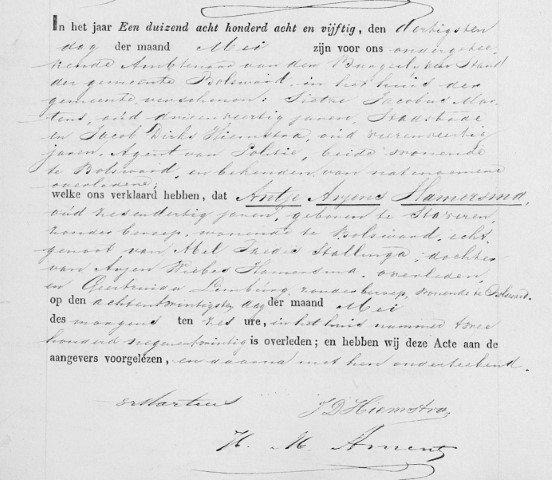 In het jaar Een duizend acht honderd acht en vijftig, den dertigsten
dag der maand Mei zijn voor ons ondergetee-
kende Ambtenaar van den Burgerlijken Stand
der gemeente Bolsward, in het huis der
gemeente verschenen: Sietse Jacobus Mar-
tens, oud drieenveertig jaren, Stadsbode
en Jacob Dirks Hiemstra, oud vierenveertig
jaren, Agent van Politie, beide wonende
te Bolsward, en bekenden van natenoemene
overledene;
welke ons verklaard hebben, dat Antje Anjens Hamersma,
oud zesendertig jaren, geboren te Staveren,
zonder beroep, wonende te Bolsward, echt-
genoot van Abel Taedes Stallinga, dochter
van Anjen Wiebes Hamersma, overleden,
en Geertruida Limburg, zonder beroep, wonende te Bolsward.
op den achtentwintigsten dag der maand Mei
des morgens ten zes ure, in het huis nummer twee
honderd negenentwintig is overleden; en hebben wij deze Acte aan de
aangevers voorgelezen, en daarna met hen onderteekend.
S Martens JDHiemstra
H. M. Ament